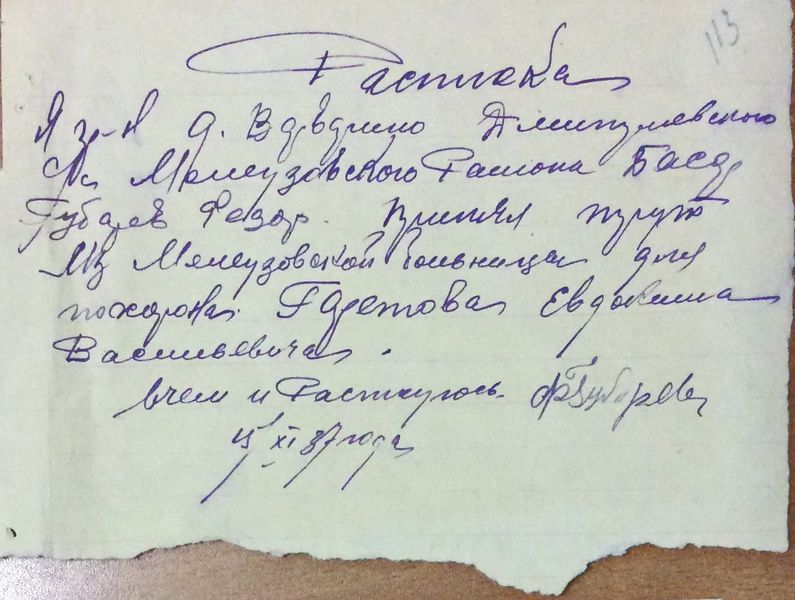 113
Расписка
Я гр-н д. Вавдино
с/с Мелеузовского Района Баср
Губарев Федор. Принял труп
Из Мелеузовской больницы для
похорона Евдокима
Васильевича.
вчем и Распишусь ФГубарев
15/XI 37 года